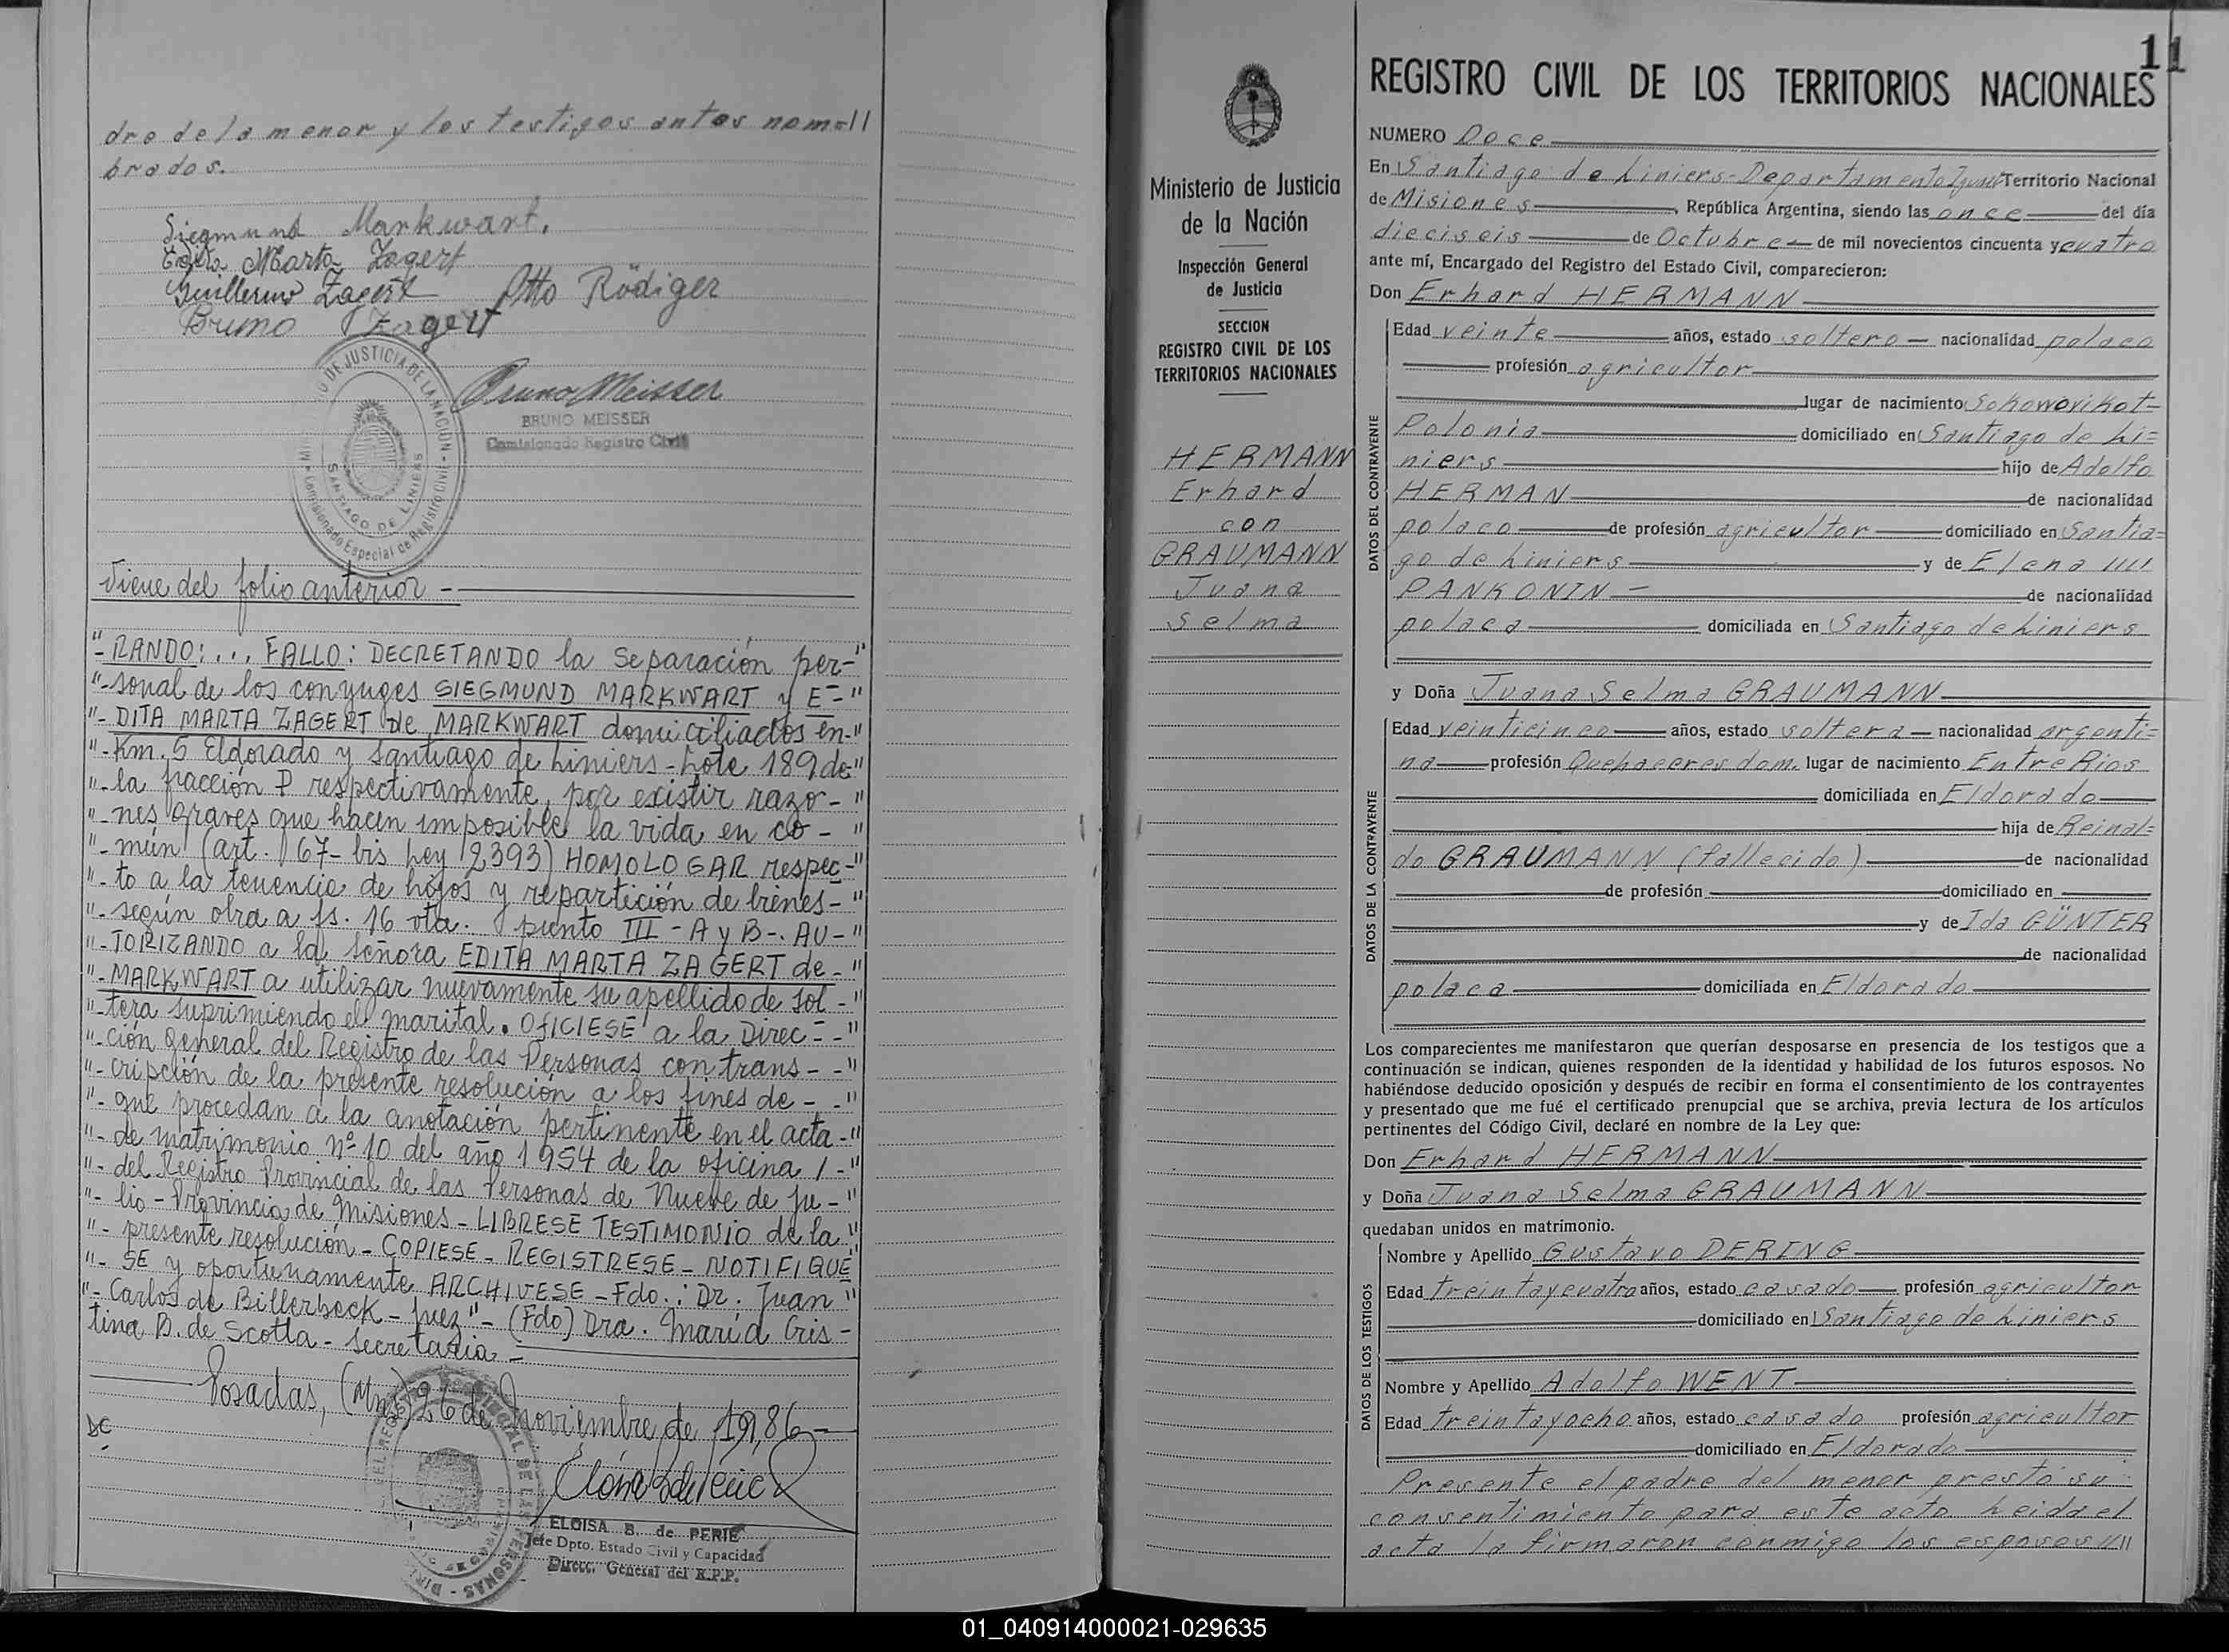 dre de la menor y los testigos antes nom=//
brados.
Siegmund Markwart.
Edita Marta Zagert
Guillermo Zagert Otto Rödiger
Bruno Zagert
Bruno Meisser
BRUNO MEISSER
Comisionado Registro Civil
SANTIAGO DE LINIERS
Viene del folio anterior -
"-RANDO:... FALLO: DECRETANDO la Separación per-"
"-sonal de los conyuges SIEGMUND MARKWART y E="
"-DITA MARTA ZAGERT de MARKWART domiciliados en-"
"-Km. 5 Eldorado y Santiago de Liniers - Lote 189 de-"
"-la fracción P respectivamente, por existir razo-"
"-nes graves que hacen imposible la vida en co-"
"-mún (art. 67-bis Ley 2393) HOMOLOGAR respec-"
"-to a la tenencia de hijos y repartición de bienes-"
"-según obra a fs. 16 vta. punto III - A y B-. AU-"
"-TORIZANDO a la señora EDITA MARTA ZAGERT de-"
"-MARKWART a utilizar nuevamente su apellido de sol-"
"-tera suprimiendo el marital. OFICIESE a la Direc--"
"-ción General del Registro de las Personas con trans--"
"-cripción de la presente resolución a los fines de--"
"-que procedan a la anotación pertinente en el acta-"
"-de matrimonio nº 10 del año 1954 de la oficina 1-"
"-del Registro Provincial de las Personas de Nueve de Ju-"
"-lio - Provincia de Misiones - LIBRESE TESTIMONIO de la"
"-presente resolución - COPIESE - REGISTRESE - NOTIFIQUE"
"-SE y oportunamente ARCHIVESE - Fdo.: Dr. Juan"
"-Carlos de Billerbeck - Juez" - (Fdo) Dra. María Cris-
tina B. de Scotta - Secretaria -
Posadas, (Mns) 26 de noviembre de 1986-
DC
ELOISA B. de PERIE
Jefe Dpto. Estado Civil y Capacidad
Direcc. General del R.P.P.
11
Ministerio de Justicia
de la Nación
Inspección General
de Justicia
SECCION
REGISTRO CIVIL DE LOS
TERRITORIOS NACIONALES
HERMANN
Erhard
con
GRAUMANN
Juana
Selma
REGISTRO CIVIL DE LOS TERRITORIOS NACIONALES
NUMERO Doce
En Santiago de Liniers-Departamento Iguazú Territorio Nacional
de Misiones, República Argentina, siendo las once del día
dieciseis de Octubre de mil novecientos cincuenta y cuatro
ante mí, Encargado del Registro del Estado Civil, comparecieron:
Don Erhard HERMANN
DATOS DEL CONTRAYENTE
Edad veinte años, estado soltero nacionalidad polaco
profesión agricultor
lugar de nacimiento
Polonia domiciliado en Santiago de Li=
niers hijo de Adolfo
HERMAN de nacionalidad
polaco de profesión agricultor domiciliado en Santia=
go de Liniers y de Elena ////
PANKONIN - de nacionalidad
polaca domiciliada en Santiago de Liniers
y Doña Juana Selma GRAUMANN
DATOS DE LA CONTRAYENTE
Edad veinticinco años, estado soltera nacionalidad argenti=
na profesión Quehaceres dom. lugar de nacimiento Entre Rios
domiciliada en Eldorado
hija de Reinal=
do GRAUMANN (fallecido) de nacionalidad
de profesión domiciliado en
y de Ida GÜNTER
de nacionalidad
polaca domiciliada en Eldorado
Los comparecientes me manifestaron que querían desposarse en presencia de los testigos que a
continuación se indican, quienes responden de la identidad y habilidad de los futuros esposos. No
habiéndose deducido oposición y después de recibir en forma el consentimiento de los contrayentes
y presentado que me fué el certificado prenupcial que se archiva, previa lectura de los artículos
pertinentes del Código Civil, declaré en nombre de la Ley que:
Don Erhard HERMANN
y Doña Juana Selma GRAUMANN
quedaban unidos en matrimonio.
DATOS DE LOS TESTIGOS
Nombre y Apellido Gustavo DERING
Edad treinta y cuatro años, estado casado profesión agricultor
domiciliado en Santiago de Liniers
Nombre y Apellido Adolfo WENT
Edad treinta y ocho años, estado casado profesión agricultor
domiciliado en Eldorado
Presente el padre del menor prestó su
consentimiento para este acto. Leida el
acta la firmaron conmigo los esposos ////
01_040914000021-029635